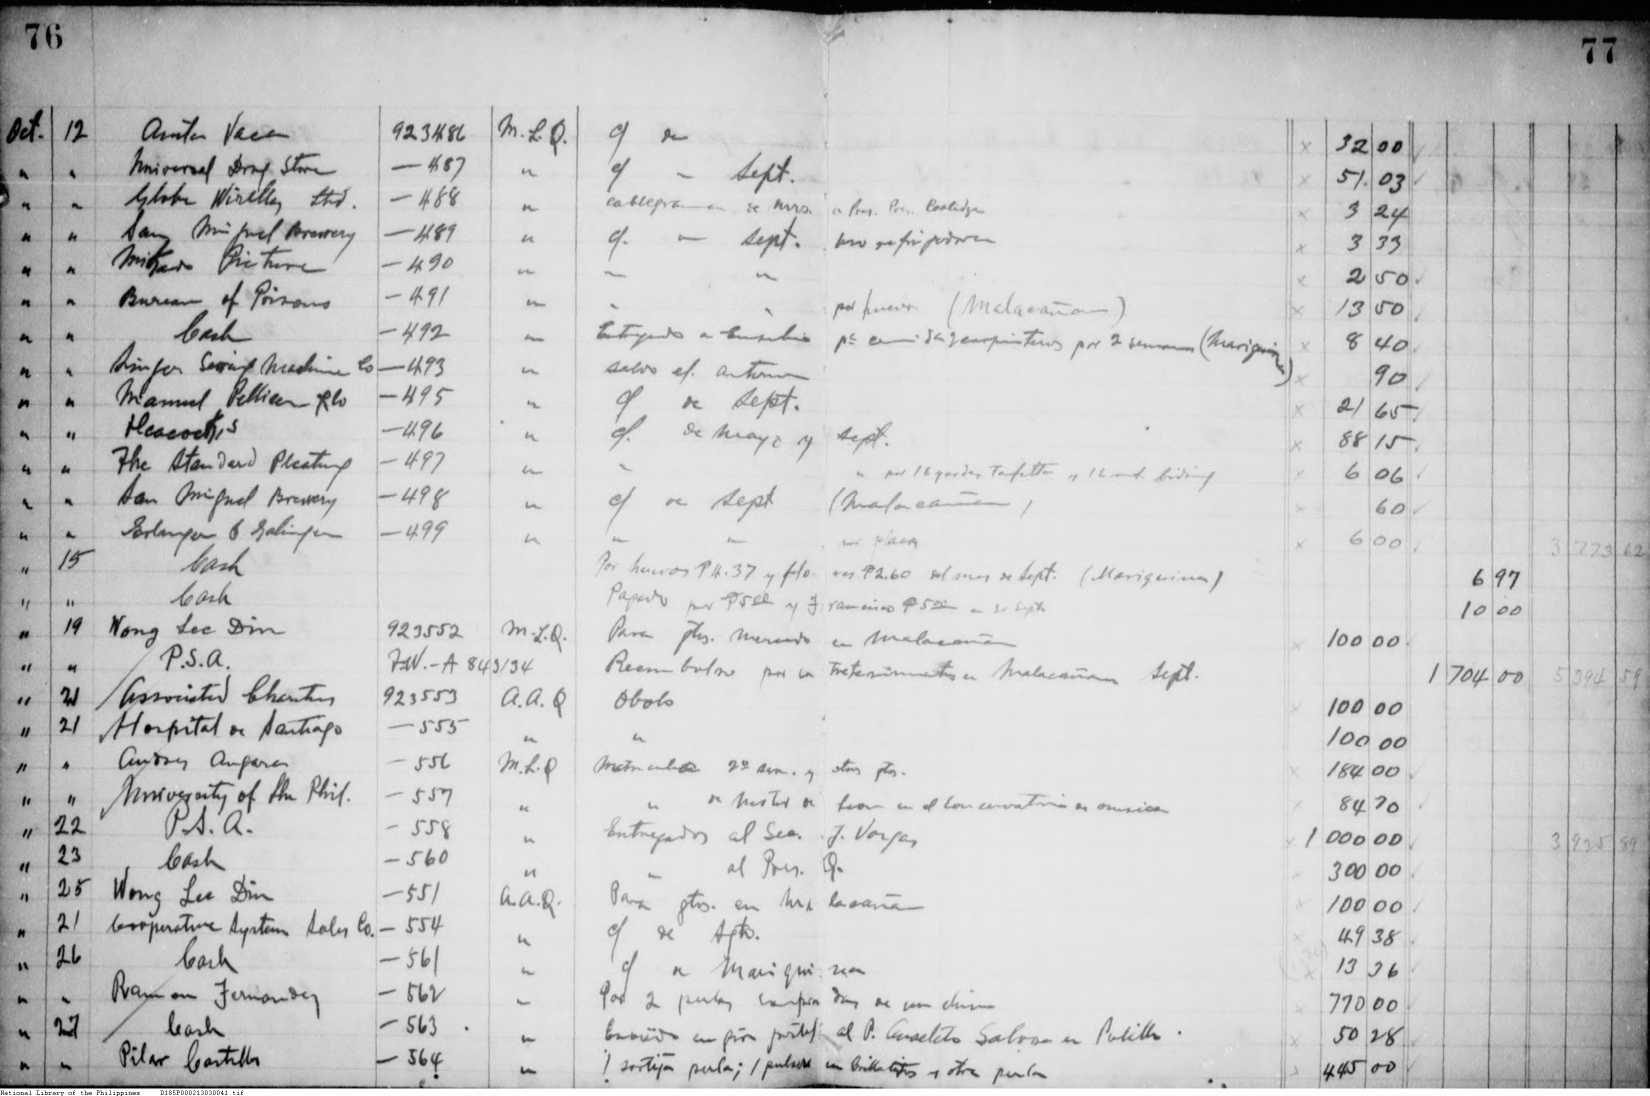 76 77
Oct. 12 Anita Vaca 923486 M.L.Q. c/ de 32 00
" " Universal Drug Store — 487 " c/ " Sept. 51.03
" " Globe Wireless Ltd. — 488 " cablegrama de 3 24
" " San Miguel Brewery — 489 " c/. — Sept. 3 33
" " Mikado Picture — 490 " " " 2 50
" " Bureau of Prisons — 491 " " " por (Malacañan) 13 50
" " Cash — 492 " Entregado a Eusebio pa comida carpinteros por 2 semanas (Mariquina) 8 40
" " Singer Sewing Machine Co — 493 " saldo cf. anterior 90
" " Manuel Pellicer & Co — 495 " c/ de Sept. 21 65
" " Heacock's — 496 " c/. de Mayo y Sept. 88 15
" " The Standard Pleating — 497 " " " por 16 yardas Tafetta y 16 6 06
" " San Miguel Brewery — 498 " c/ de Sept (Malacañan) 60
" " Erlanger & Galinger — 499 " " " 6 00 3 773 62
" 15 Cash Por huevos ₱4.37 y flores ₱2.60 del mes de Sept. (Mariquina) 6 97
" " Cash Pagado por y Francisco 10 00
" 19 Wong Lee Din 923552 M.L.Q. Para gtos. mercado en Malacañan 100 00
" " P.S.A. F.W.-A 843134 Reembolso por en Malacañan Sept. 1 704 00 5 394 59
" 21 Associated Charities 923553 A.A.Q Obolo 100 00
" 21 Hospital de Santiago — 555 " " 100 00
" " Andres Angara — 556 M.L.Q Matricula 2º sem. y otros gtos. 184 00
" " University of the Phil. — 557 " " de de en el Conservatorio de musica 84 70
" 22 P.S.A. — 558 " Entregados al Sec. J. Vargas 1 000 00 3 935 89
" 23 Cash — 560 " " al Pres. Q. 300 00
" 25 Wong Lee Din — 551 A.A.Q. Para gtos. en Malacañan 100 00
" 21 Cooperative System Sales Co. — 554 " c/ de Agto. 49 38
" 26 Cash — 561 " c/ de Mariquina 13 36
" " Ramon Fernandez — 562 " Por 2 perlas compradas de un chino 770 00
" 27 Cash — 563 " Enviado en giro postal al P. Anacleto en Polillo. 50 28
" " Pilar Castillo — 564 " 1 sortija perla; 1 pulsera en brillantitos y otra perla 445 00
National Library of the Philippines D185P000213030041.tif